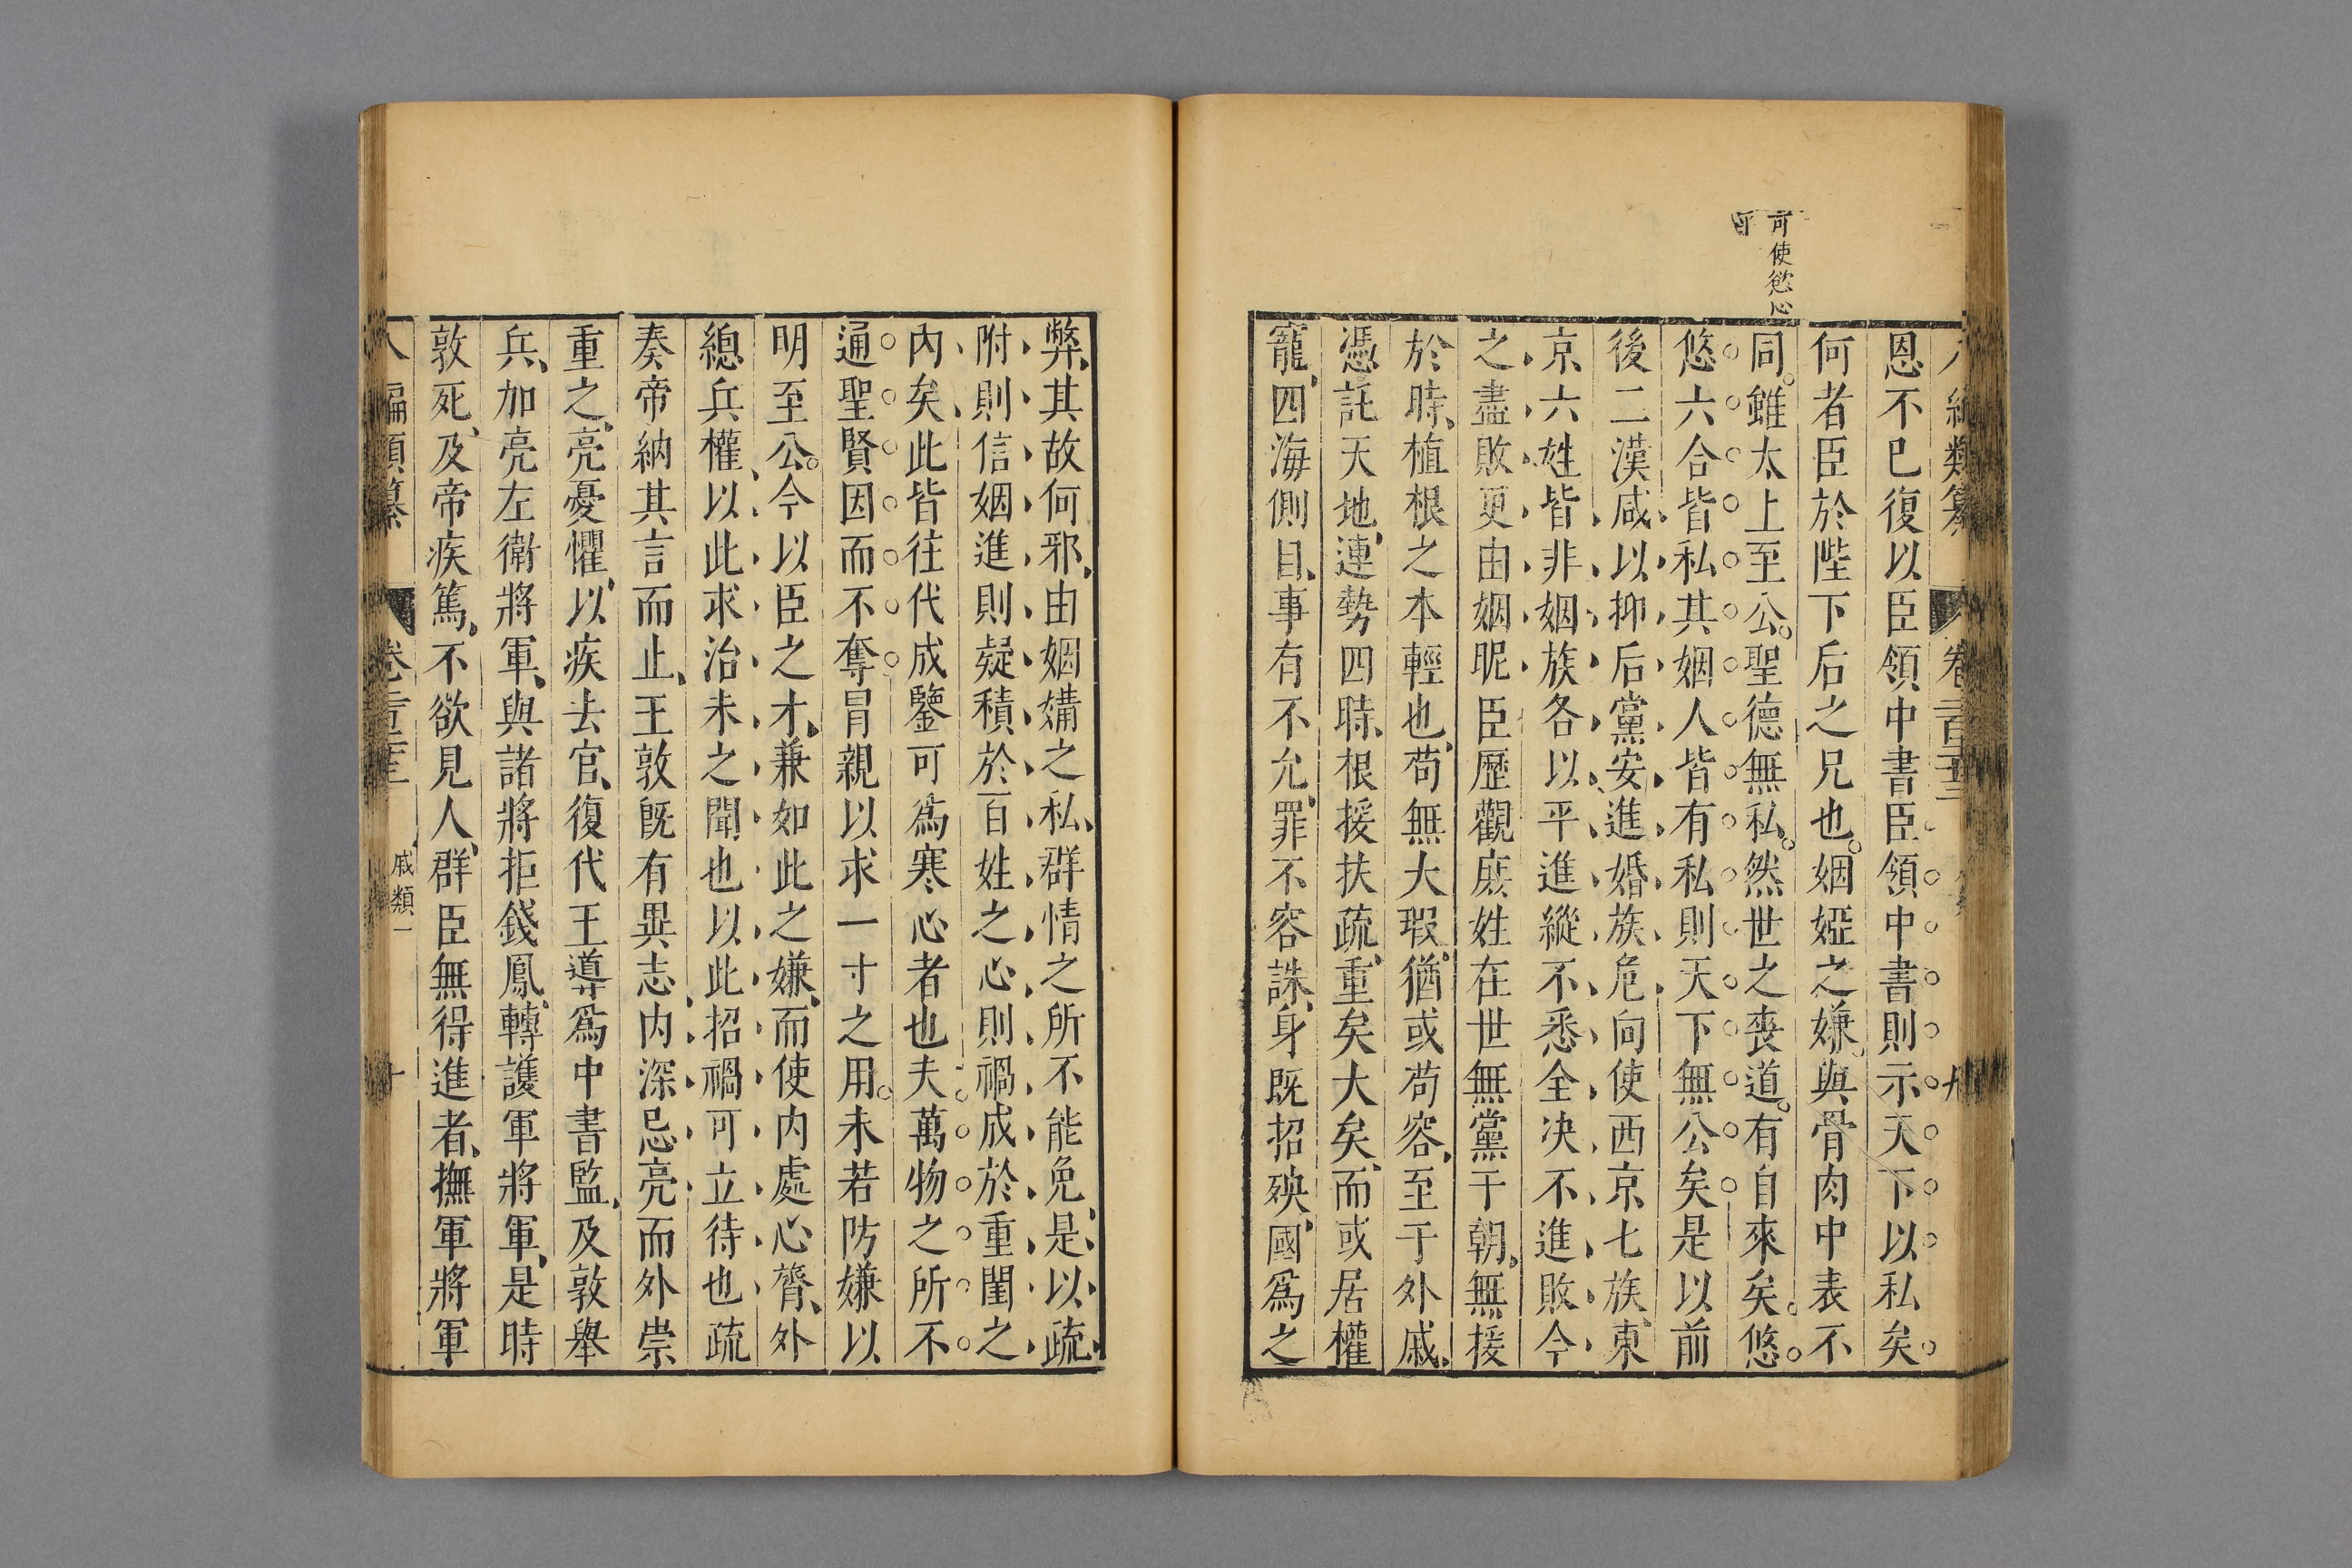 可使慾心
恩不已復以臣領中書臣領中書則示天下以私矣
何者臣於陛下后之兄也姻婭之嫌與骨肉中表不
同雖太上至公聖德無私然世之喪道有自來矣悠
悠六合皆私其姻人皆有私則天下無公矣是以前
後二漢咸以抑后黨安進婚族危向使西京七族東
京六姓皆非姻族各以平進縱不悉全决不進敗今
之盡敗更由姻昵臣歷觀庶姓在世無黨于朝無援
於時植根之本輕也苟無大瑕猶或苟容至于外戚
憑託天地連勢四時根援扶疏重矣大矣而或居權
寵四海側目事有不允罪不容誅身既招殃國爲之
弊其故何邪由姻媾之私群情之所不能免是以疏
附則信姻進則疑積於百姓之心則禍成於重閨之
內矣此皆往代成鑒可爲寒心者也夫萬物之所不
通聖賢因而不奪冐親以求一寸之用未若防嫌以
明至公今以臣之才兼如此之嫌而使內處心膂外
總兵權以此求治未之聞也以此招禍可立待也疏
奏帝納其言而止王敦既有異志内深忌亮而外崇
重之亮憂懼以疾去官復代王導爲中書監及敦舉
兵加亮左衛將軍與諸將拒錢鳳轉護軍將軍是時
敦死及帝疾篤不欲見人群臣無得進者撫軍將軍
八編類纂 戚類一 十